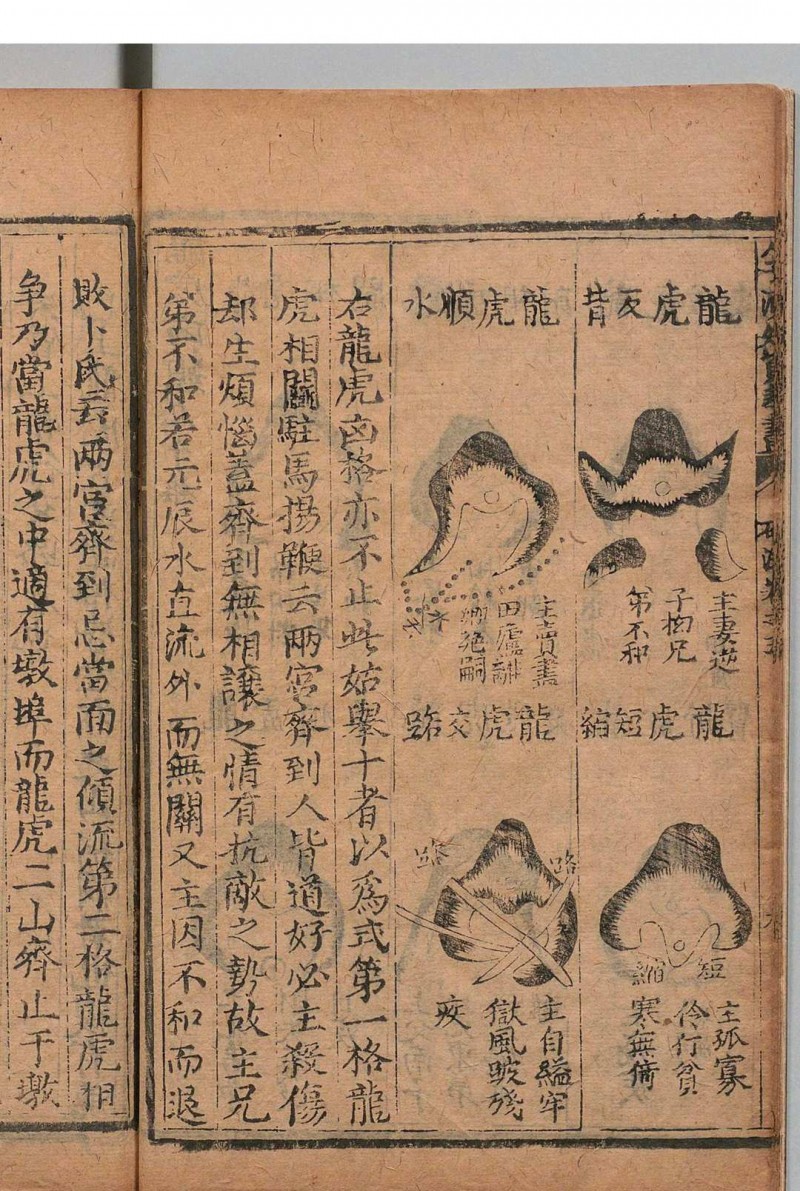 龍虎反背
主妻逆
子拗兄
弟不和
龍虎短縮
短
縮
主孤寡
伶仃貧
寒無倚
龍虎順水
主賣盡
田廬離
絶嗣
龍虎交路
路
路
主自縊牢
獄風跛殘
疾
右龍虎凶格亦不止此姑舉十者以為式第一格龍
虎相鬭駐馬揚鞭云兩宮齊到人皆道好必主殺傷
却生煩惱蓋齊到無相讓之情有抗敵之勢故主兄
弟不和若元辰水直流外而無關又主因不和而退
敗卜氏云兩宮齊到忌當面之傾流第二格龍虎相
争乃當龍虎之中適有墩埠而龍虎二山齊止于墩